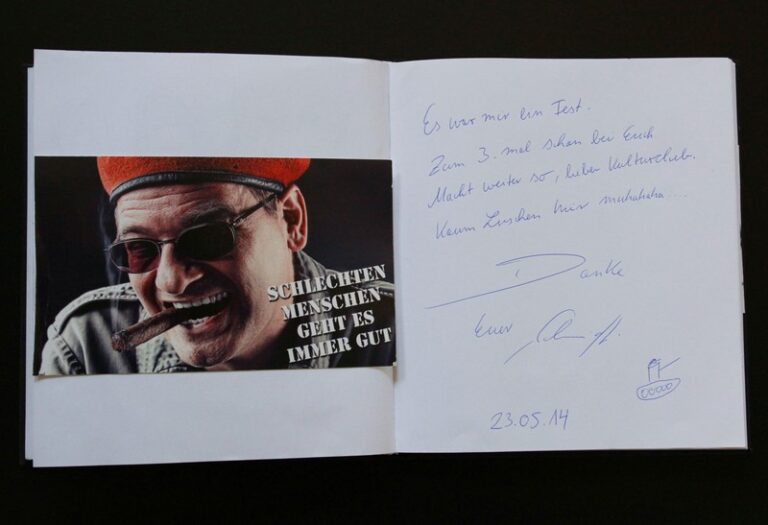 SCHLECHTEN
MENSCHEN
GEHT ES
IMMER GUT
Es war mir ein Fest.
Zum 3. mal schon bei Euch
Macht weiter so, lieber Kulturclub.
Kaum Luschen hier muhahaha...
Danke
Euer
23.05.14